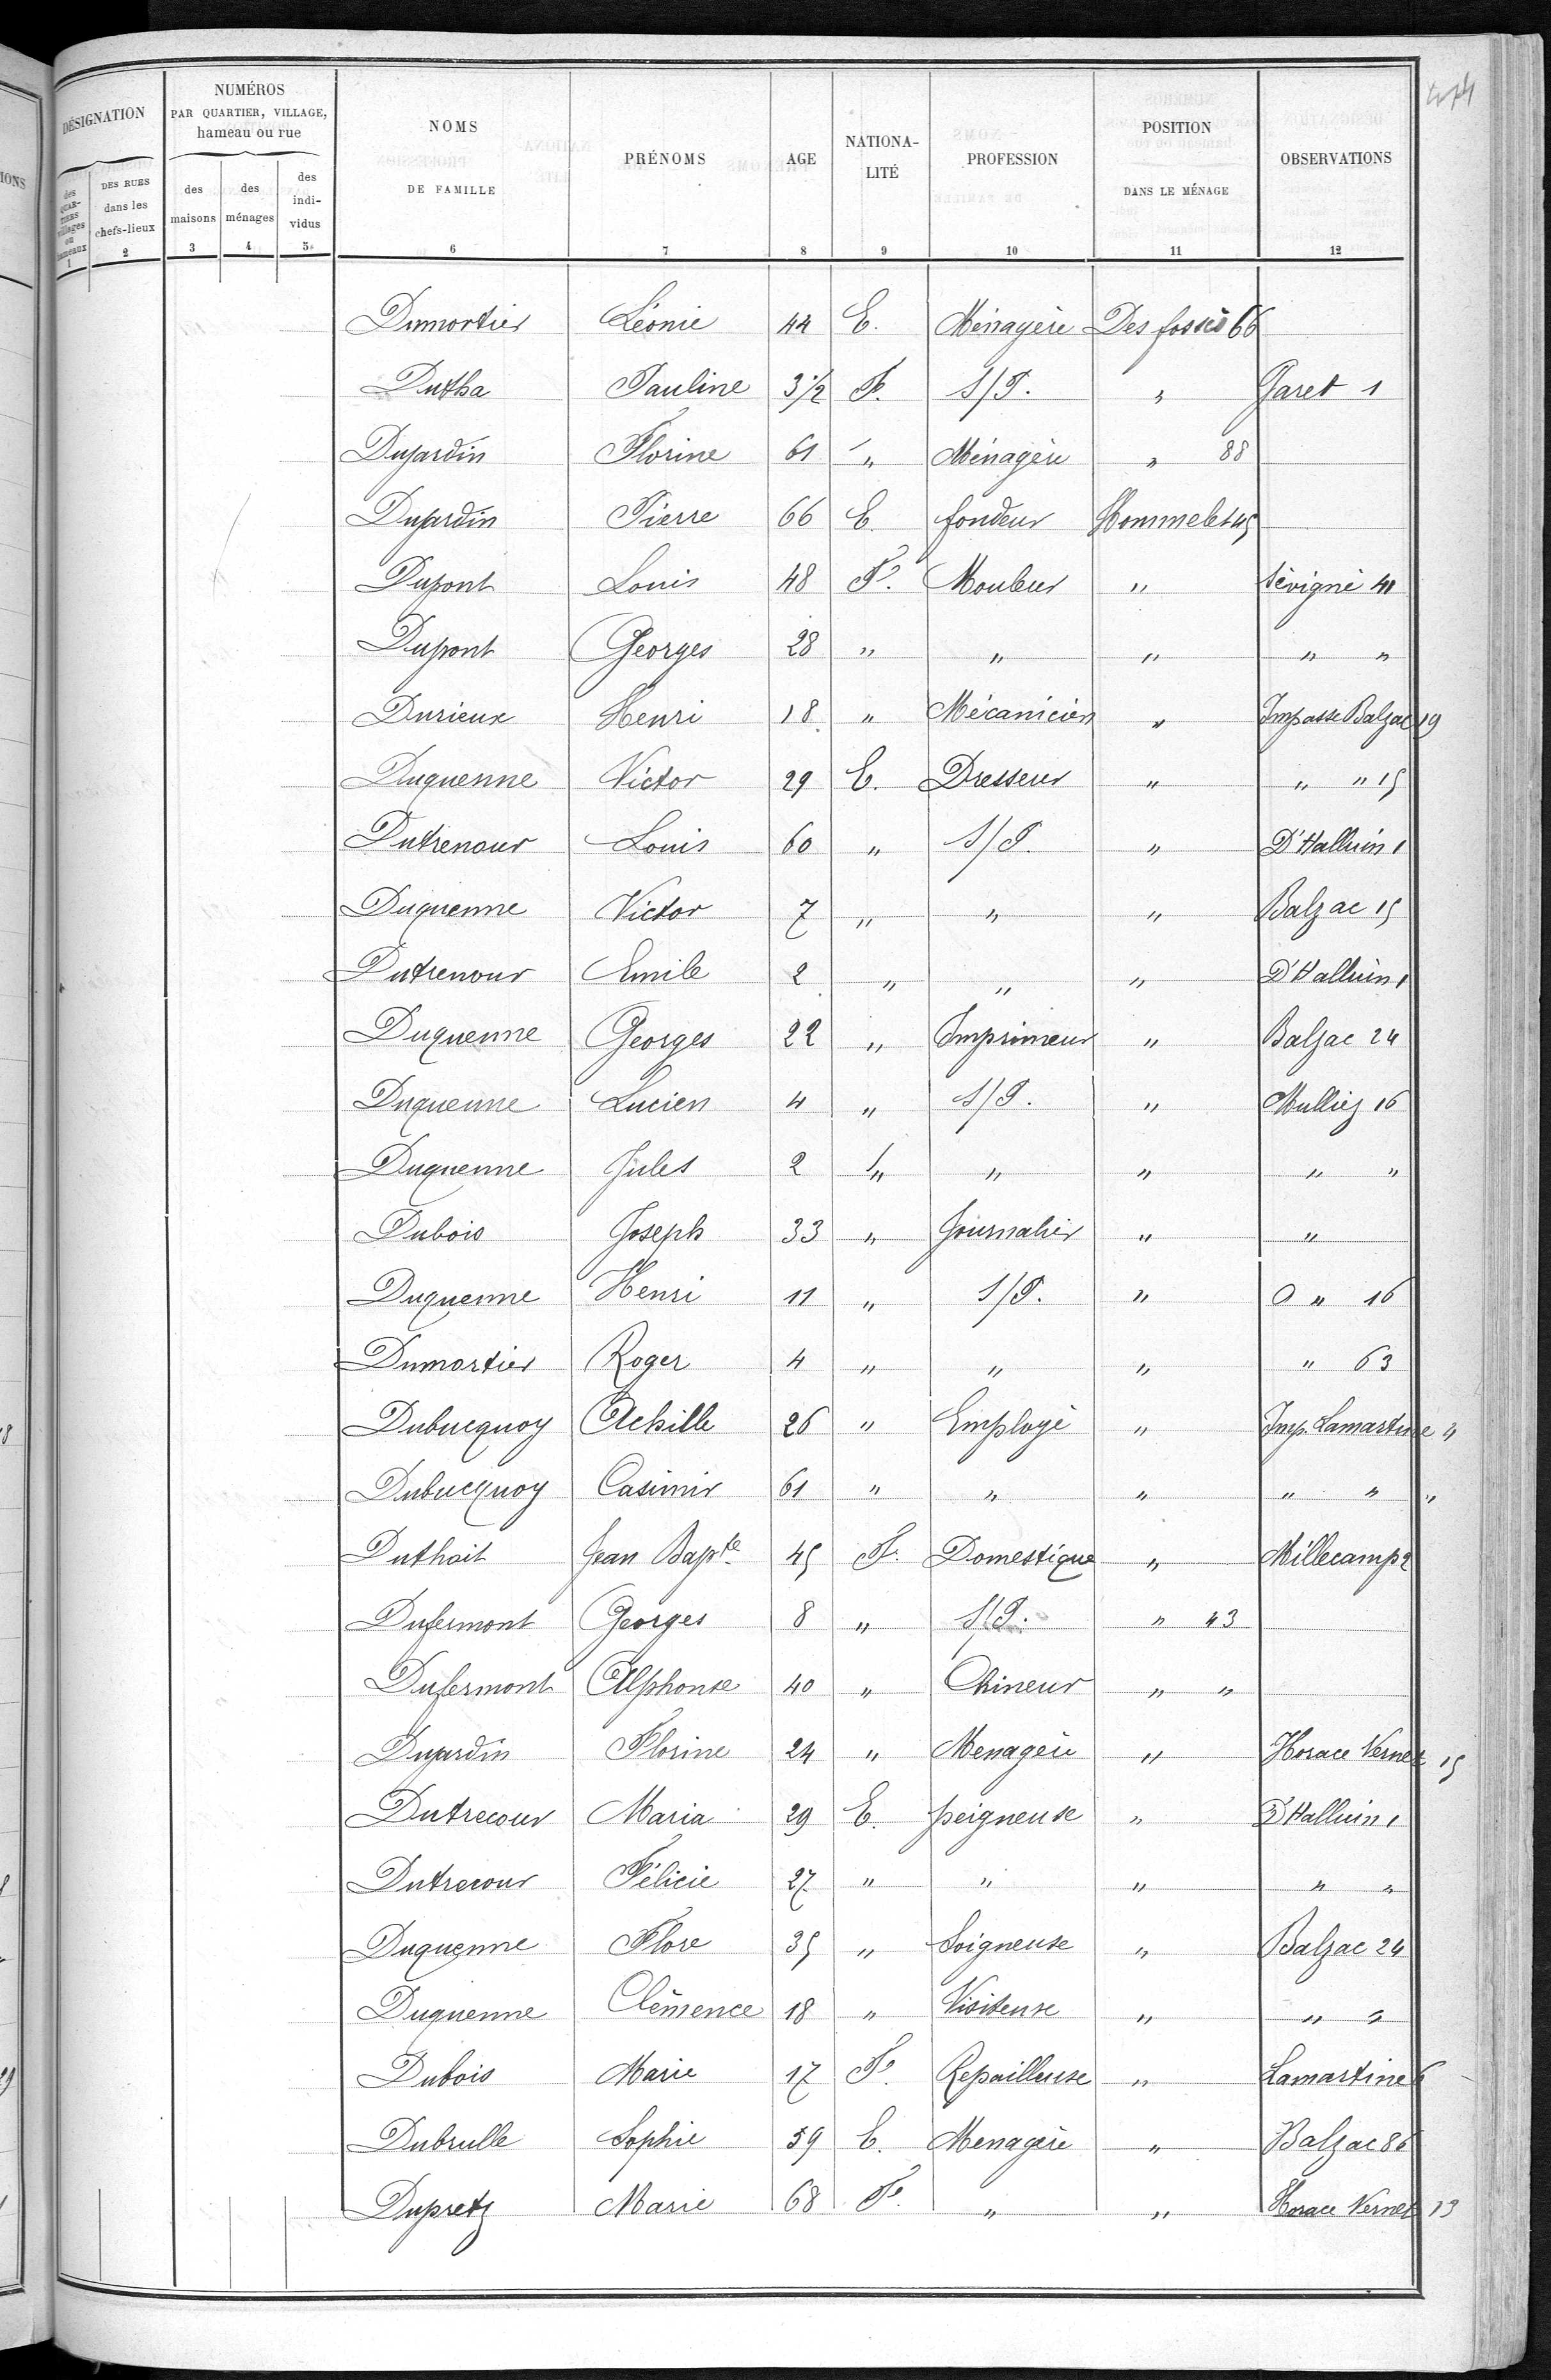 DÉSIGNATION
NUMÉROS
PAR QUARTIER, VILLAGE,
hameau ou rue
NOMS
DE FAMILLE
PRÉNOMS
AGE
NATIONA-
LITÉ
PROFESSION
POSITION
DANS LE MÉNAGE
OBSERVATIONS
des
QUAR-
TIERS
villages
ou
hameaux
DES RUES
dans les
chefs-lieux
des
maisons
des
ménages
des
indi-
vidus
1 2 3 4 5 6 7 8 9 10 11 12
Dumortier Léonie 44 E. Ménagère Des fossés 66
Dutha Pauline 3 1/2 F. S/P. " Garet 1
Dujardin Florine 61 " Ménagère " 88
Dujardin Pierre 66 E. fondeur Hommelet 45
Dupont Louis 48 F. Mouleur " Sévigné 41
Dupont Georges 28 " " " " "
Durieux Henri 18 " Mécanicien " Impasse Balzac 19
Duquenne Victor 29 E. Dresseur " " " 15
Dutrenour Louis 60 " S/P. " D'Halluin 1
Duquenne Victor 7 " " " Balzac 15
Dutrenour Emile 2 " " " D'Halluin 1
Duquenne Georges 22 " Imprimeur " Balzac 24
Duquenne Lucien 4 " S/P. " Mulliez 16
Duquenne Jules 2 " " " " "
Dubois Joseph 33 " Journalier " "
Duquenne Henri 11 " S/P. " " 16
Dumortier Roger 4 " " " " 63
Dubucquoy Achille 26 " Employé " Imp. Lamartine 4
Dubucquoy Casimir 61 " " " " " "
Duthoit Jean Bapte 45 F. Domestique " Millecamp 2
Dufermont Georges 8 " S/P. " 43
Dufermont Alphonse 40 " Chineur " "
Dujardin Florine 24 " Menagère " Horace Vernet 15
Dutrecour Maria 29 E. peigneuse " D'Halluin 1
Dutrecour Félicie 27 " " " " "
Duquenne Flore 35 " Soigneuse " Balzac 24
Duquenne Clémence 18 " Visiteuse " " "
Dubois Marie 17 F. Repailleuse " Lamartine 6
Dubrulle Sophie 59 E. Menagère " Balzac 86
Dupretz Marie 68 F. " " Horace Vernet 13